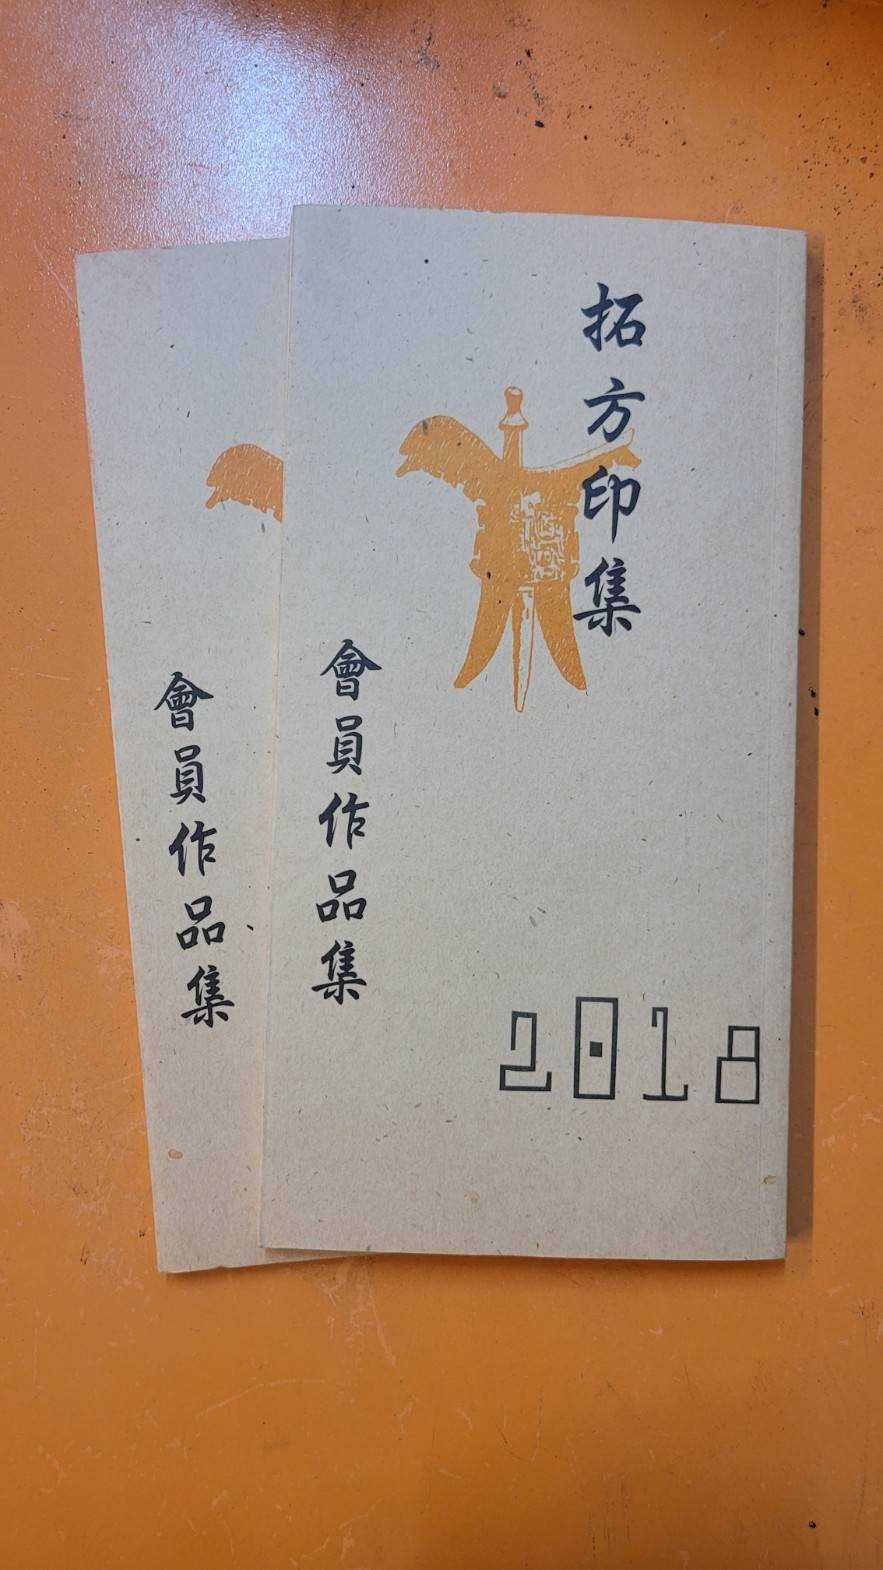 拓方印集
會員作品集
2018
會員作品集